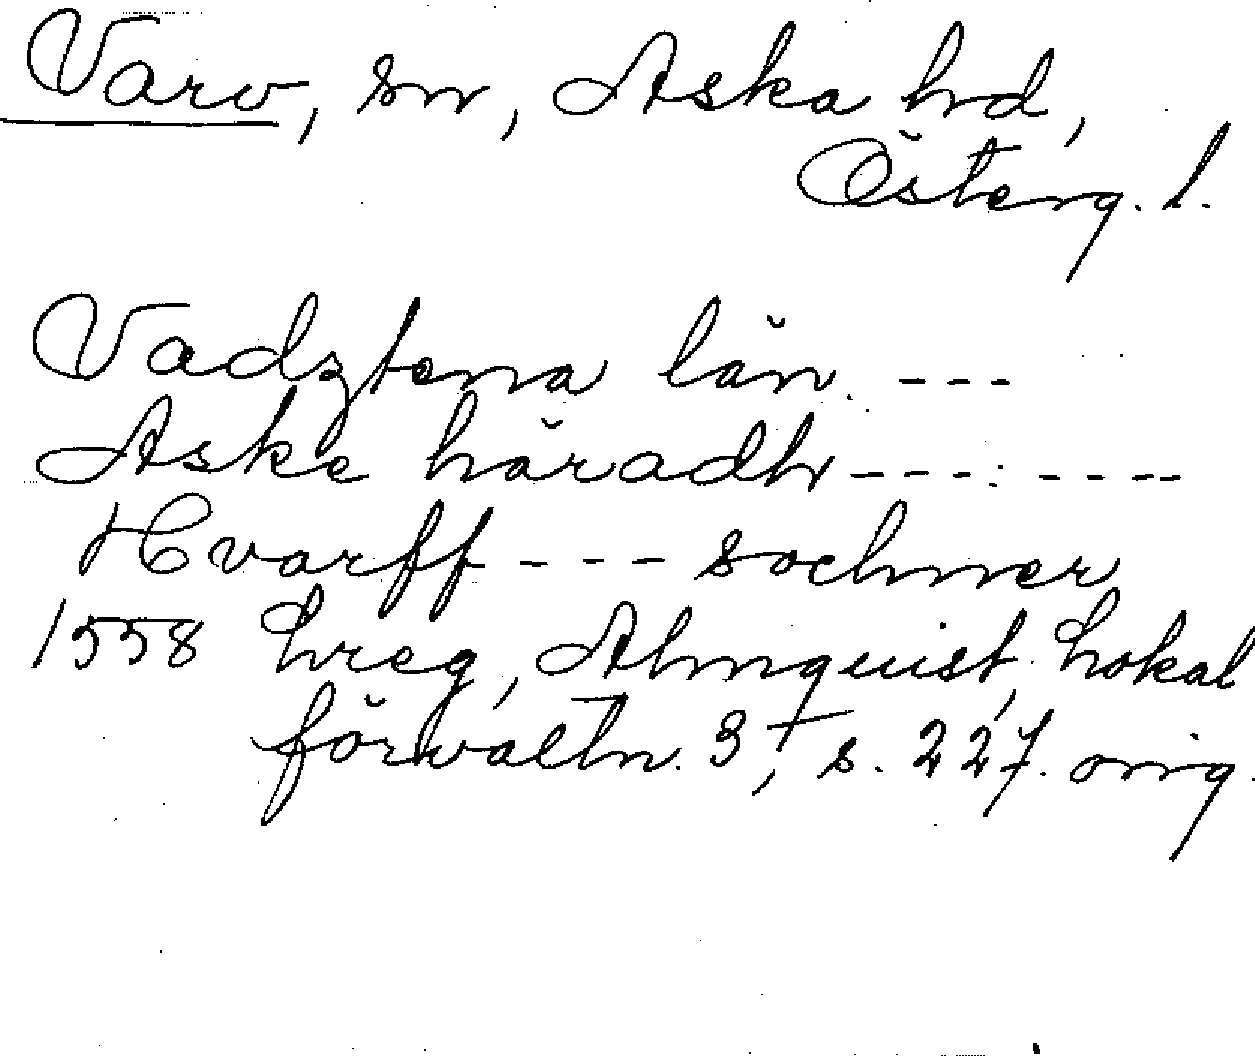 Varv, sn, Aska hd,
Österg. l.
Vadztena län. ---
Aske häradh --- : ----
Hvarff --- sochner
1558 hreg, Almquist, Lokal
förvaltn. 3, s. 227. orig.